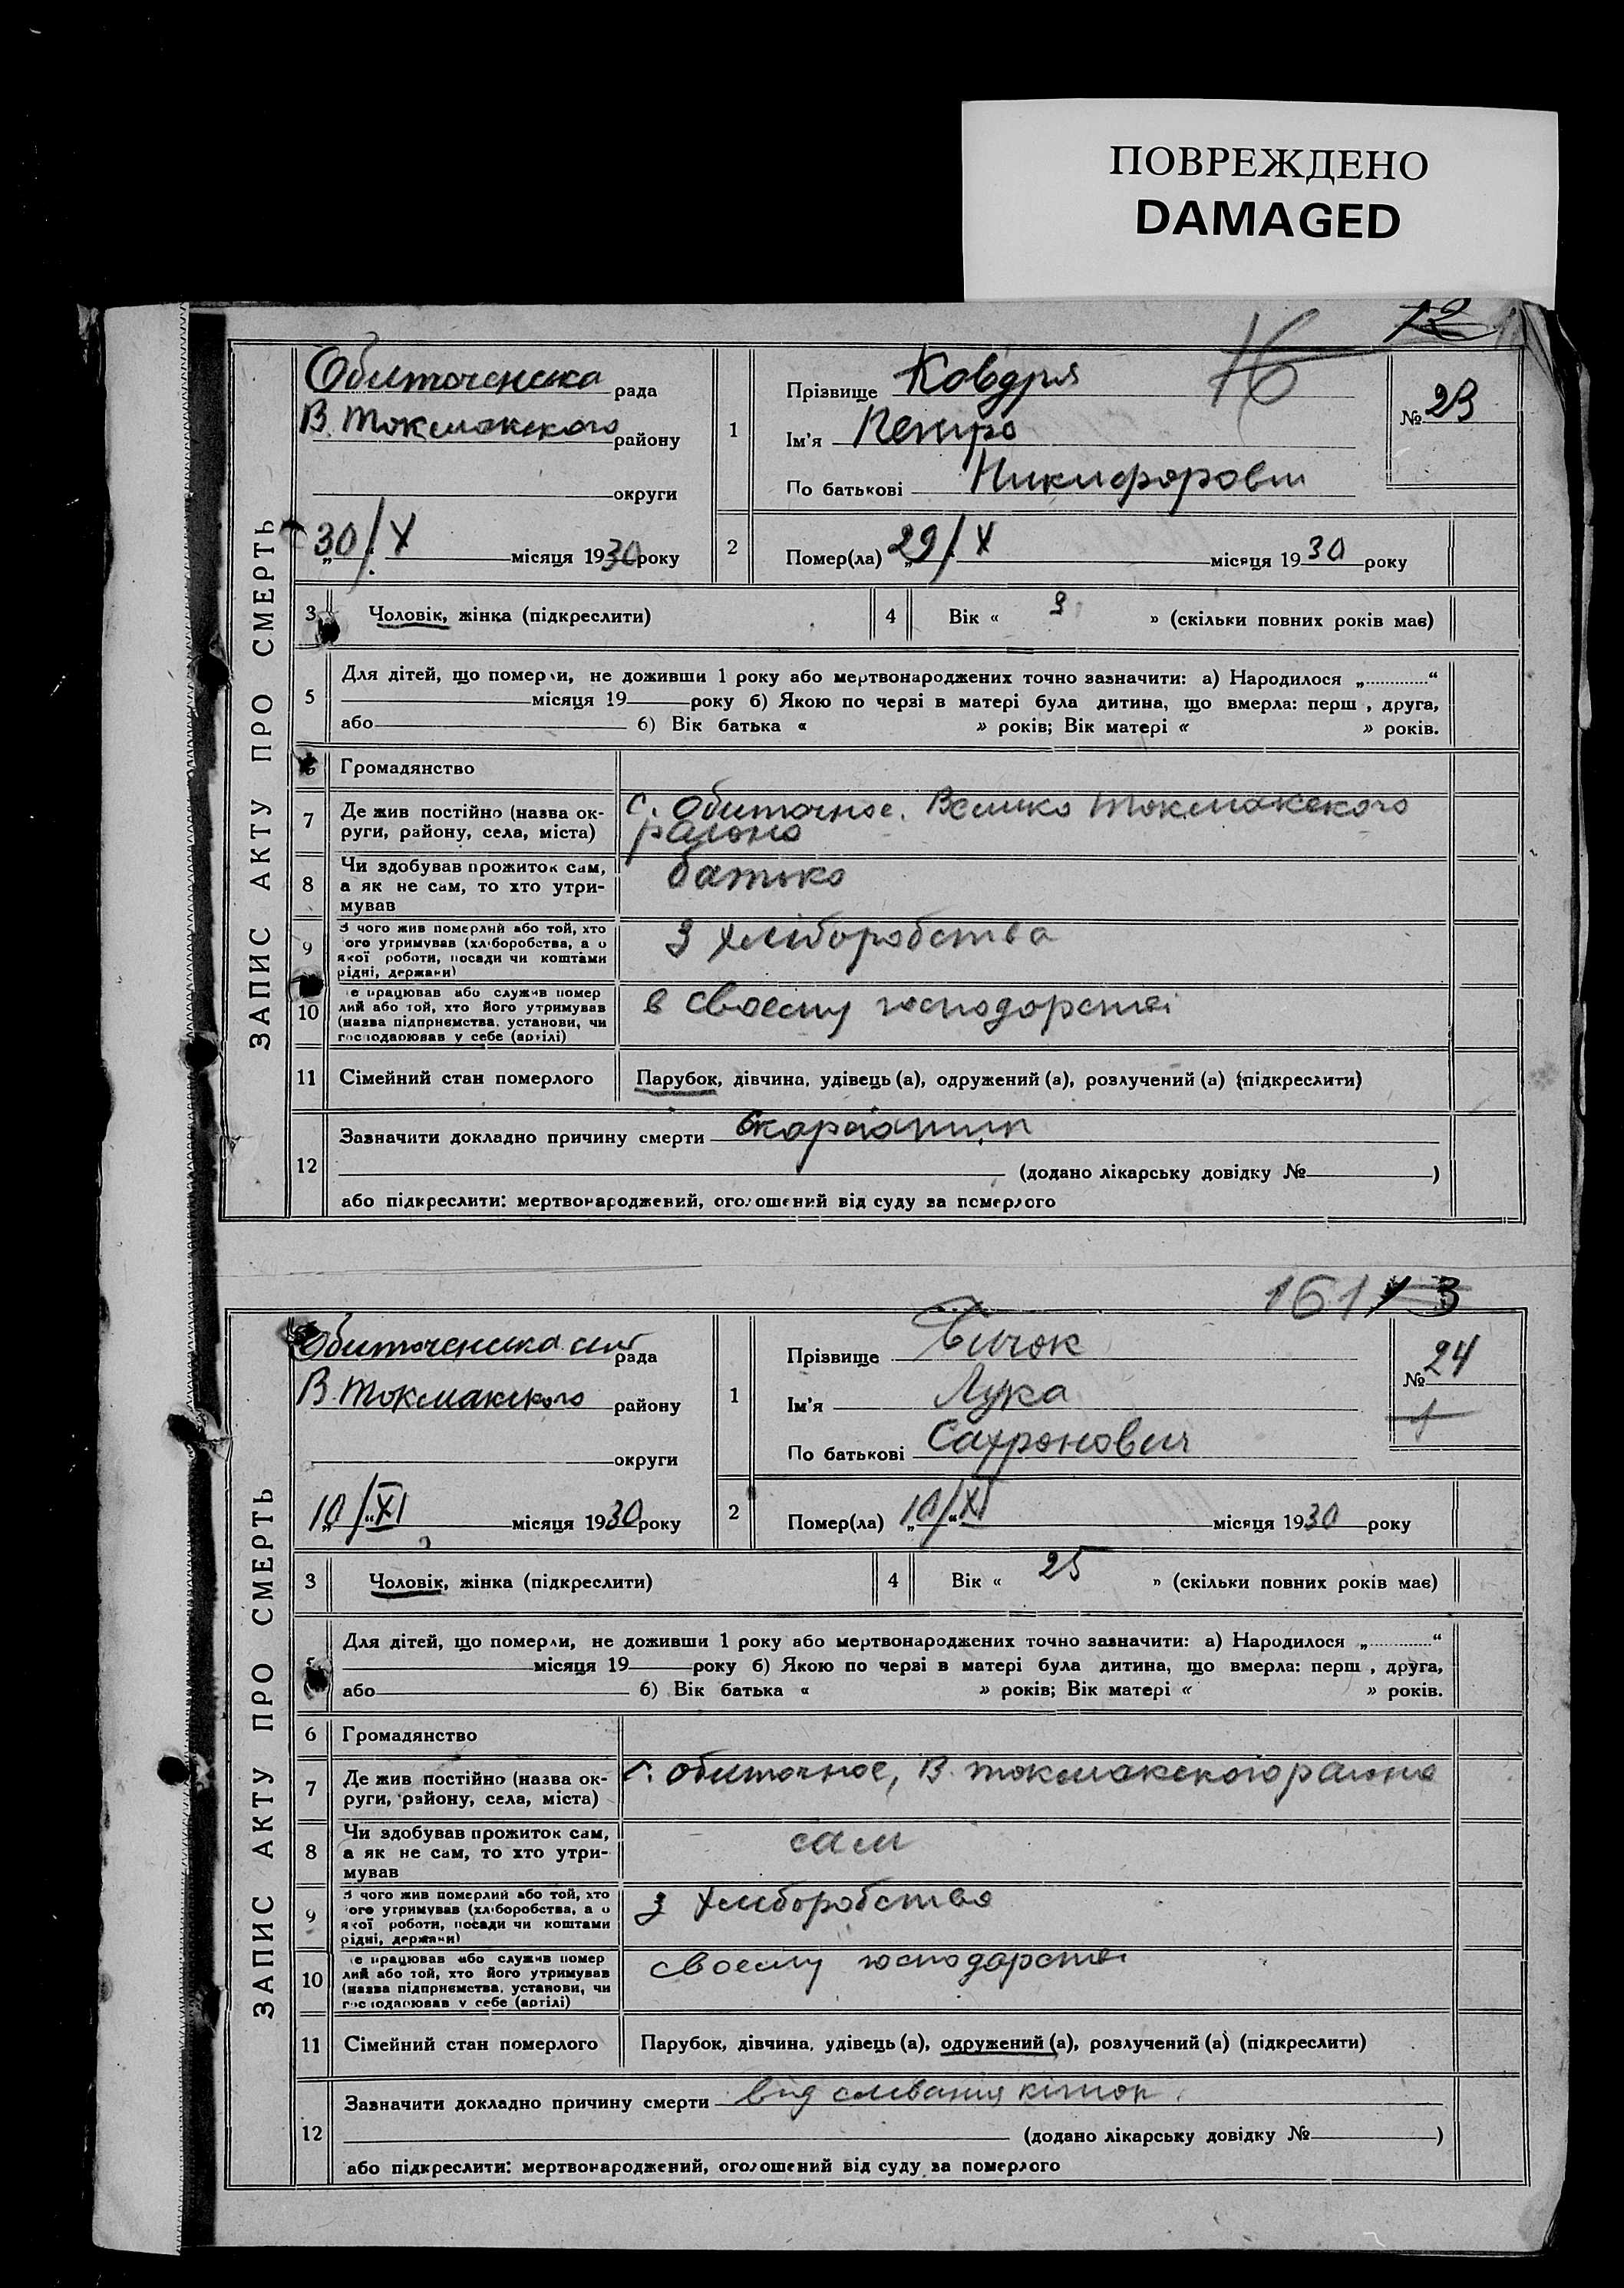 ПОВРЕЖДЕНО
DAMAGED
Обиточенска рада
В. Токмакского району
округи
„30/X місяця 1930 року
1
Прізвище Ковдря
Ім'я Петро
По батькові Никифорович
№ 23
2
Помер(ла) „29/X місяця 1930 року
3
Чоловік, жінка (підкреслити)
4
Вік « 3 » (скільки повних років має)
5
Для дітей, що померли, не доживши 1 року або мертвонароджених точно зазначити: а) Народилося „............“
місяця 19 року б) Якою по черзі в матері була дитина, що вмерла: перш , друга,
або б) Вік батька « » років; Вік матері « » років.
6
Громадянство
7
Де жив постійно (назва ок-
руги, району, села, міста)
с. Обиточное. Велико Токмакского
района
8
Чи здобував прожиток сам,
а як не сам, то хто утри-
мував
батько
9
З чого жив померлий або той, хто
ого утримував (хліборобства, а о
якої роботи, посади чи коштами
рідні, держави)
З хліборобства
10
е працював або служив помер
лий або той, хто його утримував
(назва підприємства, установи, чи
господарював у себе (артілі)
в своему господарстві
11
Сімейний стан померлого
Парубок, дівчина, удівець (а), одружений (а), розлучений (а) (підкреслити)
12
Зазначити докладно причину смерти
(додано лікарську довідку № )
або підкреслити: мертвонароджений, оголошений від суду за померлого
ЗАПИС АКТУ ПРО СМЕРТЬ
161 13
Обиточенска рада
В. Токмакского району
округи
„10/XI місяця 1930 року
1
Прізвище Бичок
Ім'я Лука
По батькові Сахронович
№ 24
2
Помер(ла) „10/XI місяця 1930 року
3
Чоловік, жінка (підкреслити)
4
Вік « 25 » (скільки повних років має)
5
Для дітей, що померли, не доживши 1 року або мертвонароджених точно зазначити: а) Народилося „............“
місяця 19 року б) Якою по черзі в матері була дитина, що вмерла: перш , друга,
або б) Вік батька « » років; Вік матері « » років.
6
Громадянство
7
Де жив постійно (назва ок-
руги, району, села, міста)
с. Обиточное, В. Токмакского района
8
Чи здобував прожиток сам,
а як не сам, то хто утри-
мував
сам
9
З чого жив померлий або той, хто
ого утримував (хліборобства, а о
якої роботи, посади чи коштами
рідні, держави)
з хліборобства
10
е працював або служив помер
лий або той, хто його утримував
(назва підприємства, установи, чи
господарював у себе (артілі)
своему господарстві
11
Сімейний стан померлого
Парубок, дівчина, удівець (а), одружений (а), розлучений (а) (підкреслити)
12
Зазначити докладно причину смерти від кишок
(додано лікарську довідку № )
або підкреслити: мертвонароджений, оголошений від суду за померлого
ЗАПИС АКТУ ПРО СМЕРТЬ